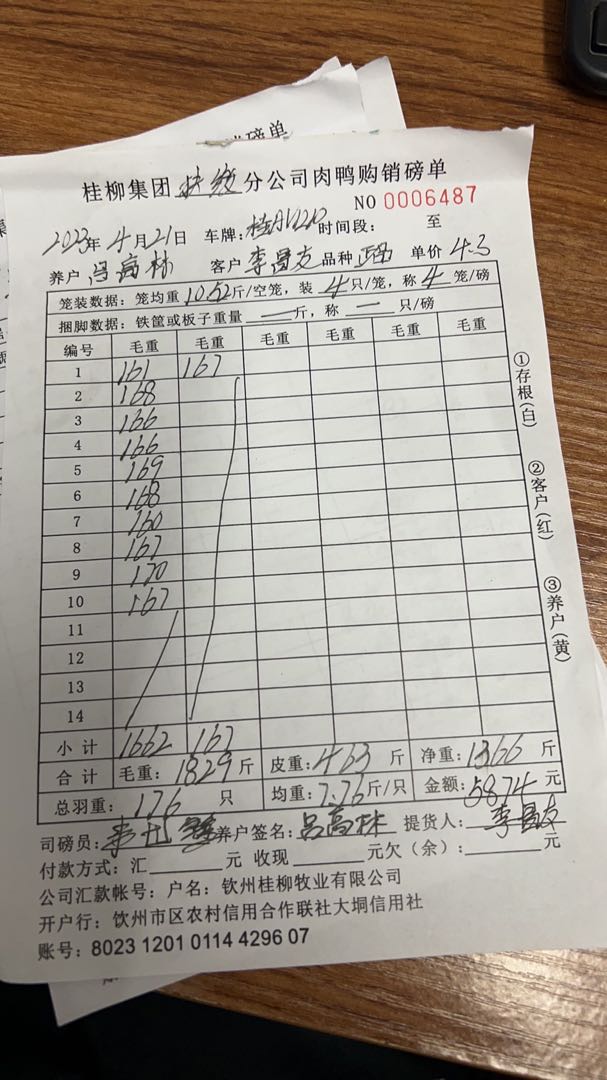 磅单
桂柳集团 分公司肉鸭购销磅单
NO 0006487
2023年 4月21日 车牌: 时间段: 至
养户 吕高林 客户 李昌友 品种 单价 4.3
笼装数据：笼均重 10.52 斤/空笼，装 4 只/笼，称 4 笼/磅
捆脚数据：铁筐或板子重量 — 斤，称 — 只/磅
编号 毛重 毛重 毛重 毛重 毛重 毛重
1 161 167
2 168
3 166
4 166
5 169
6 168
7 160
8 167
9 170
10 167
11
12
13
14
小计 1662 167
合计 毛重: 1829 斤 皮重: 463 斤 净重: 1366 斤
总羽重: 176 只 均重: 7.76 斤/只 金额: 5874 元
司磅员: 养户签名: 吕高林 提货人: 李昌友
付款方式: 汇 元 收现 元欠（余）: 元
公司汇款帐号: 户名: 钦州桂柳牧业有限公司
开户行: 钦州市区农村信用合作联社大垌信用社
账号: 8023 1201 0114 4296 07
①存根(白)
②客户(红)
③养户(黄)